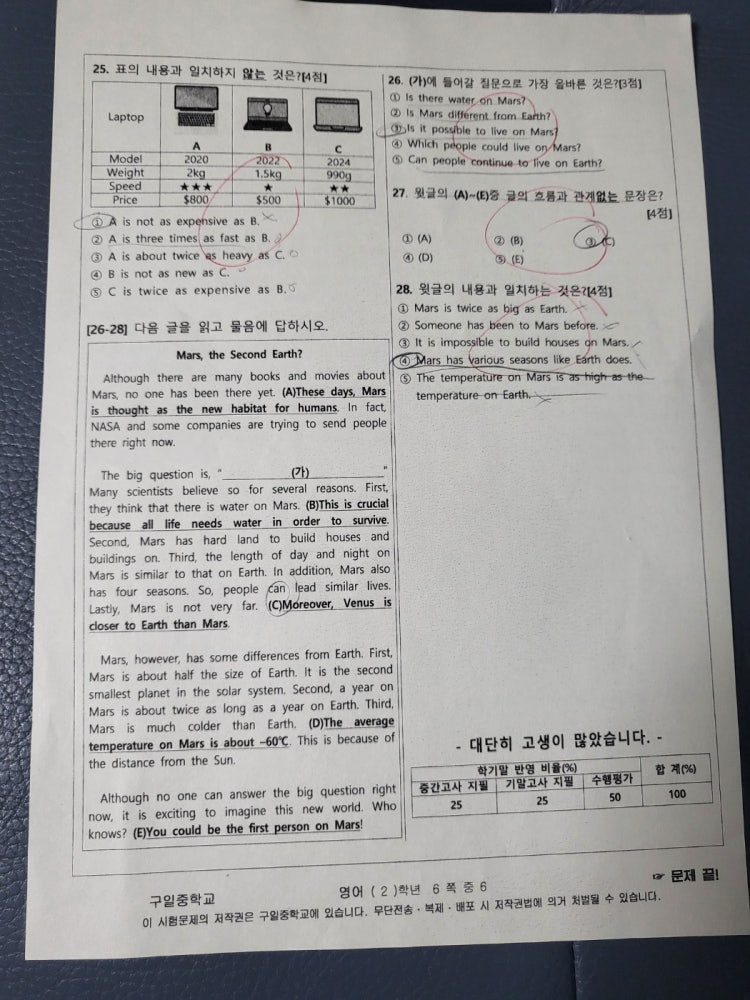 25. 표의 내용과 일치하지 않는 것은?[4점]
Laptop
A B C
Model 2020 2022 2024
Weight 2kg 1.5kg 990g
Speed ★★★ ★ ★★
Price $800 $500 $1000
① A is not as expensive as B.
② A is three times as fast as B.
③ A is about twice as heavy as C.
④ B is not as new as C.
⑤ C is twice as expensive as B.
[26-28] 다음 글을 읽고 물음에 답하시오.
Mars, the Second Earth?
Although there are many books and movies about
Mars, no one has been there yet. (A)These days, Mars
is thought as the new habitat for humans. In fact,
NASA and some companies are trying to send people
there right now.
The big question is, "(가)"
Many scientists believe so for several reasons. First,
they think that there is water on Mars. (B)This is crucial
because all life needs water in order to survive.
Second, Mars has hard land to build houses and
buildings on. Third, the length of day and night on
Mars is similar to that on Earth. In addition, Mars also
has four seasons. So, people can lead similar lives.
Lastly, Mars is not very far. (C)Moreover, Venus is
closer to Earth than Mars.
Mars, however, has some differences from Earth. First,
Mars is about half the size of Earth. It is the second
smallest planet in the solar system. Second, a year on
Mars is about twice as long as a year on Earth. Third,
Mars is much colder than Earth. (D)The average
temperature on Mars is about −60℃. This is because of
the distance from the Sun.
Although no one can answer the big question right
now, it is exciting to imagine this new world. Who
knows? (E)You could be the first person on Mars!
26. (가)에 들어갈 질문으로 가장 올바른 것은?[3점]
① Is there water on Mars?
② Is Mars different from Earth?
③ Is it possible to live on Mars?
④ Which people could live on Mars?
⑤ Can people continue to live on Earth?
27. 윗글의 (A)~(E)중 글의 흐름과 관계없는 문장은?
[4점]
① (A) ② (B) ③ (C)
④ (D) ⑤ (E)
28. 윗글의 내용과 일치하는 것은?[4점]
① Mars is twice as big as Earth.
② Someone has been to Mars before.
③ It is impossible to build houses on Mars.
④ Mars has various seasons like Earth does.
⑤ The temperature on Mars is as high as the
temperature on Earth.
- 대단히 고생이 많았습니다. -
학기말 반영 비율(%) 합 계(%)
중간고사 지필 기말고사 지필 수행평가
25 25 50 100
☞ 문제 끝!
구일중학교 영어 ( 2 )학년 6 쪽 중 6
이 시험문제의 저작권은 구일중학교에 있습니다. 무단전송·복제·배포 시 저작권법에 의거 처벌될 수 있습니다.